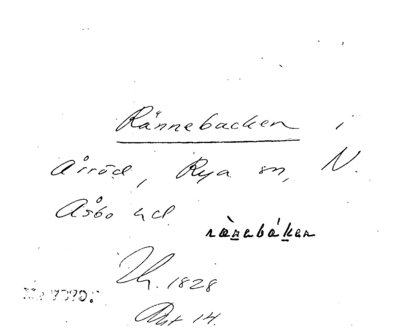 Rännebacken i
Åsröd, Rya sn, N.
Åsbo hd.
rànebáken
1828
14.